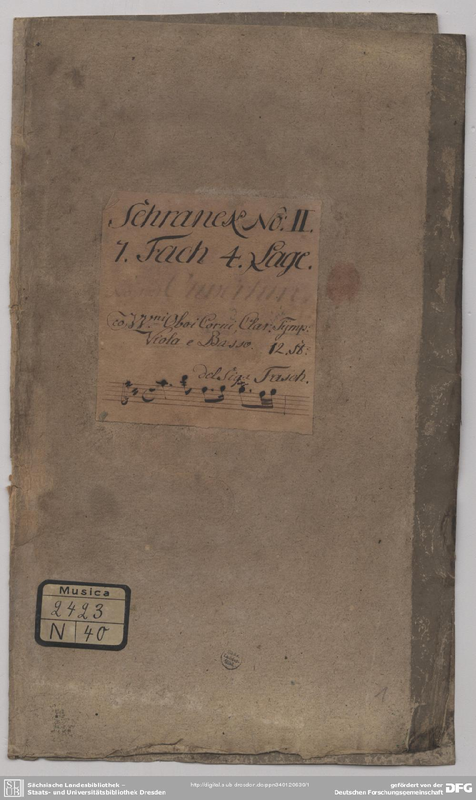 Schranck No: II.
7. Fach 4. Lage.
Ouverture.
co VV.ni Oboi Corni, Clar: Tymp:
Viola e Basso. 12. St:
Del Sigr Fasch.
Musica
2423
N 40
1
Sächsische Landesbibliothek –
Staats- und Universitätsbibliothek Dresden
gefördert von der
Deutschen Forschungsgemeinschaft
DFG